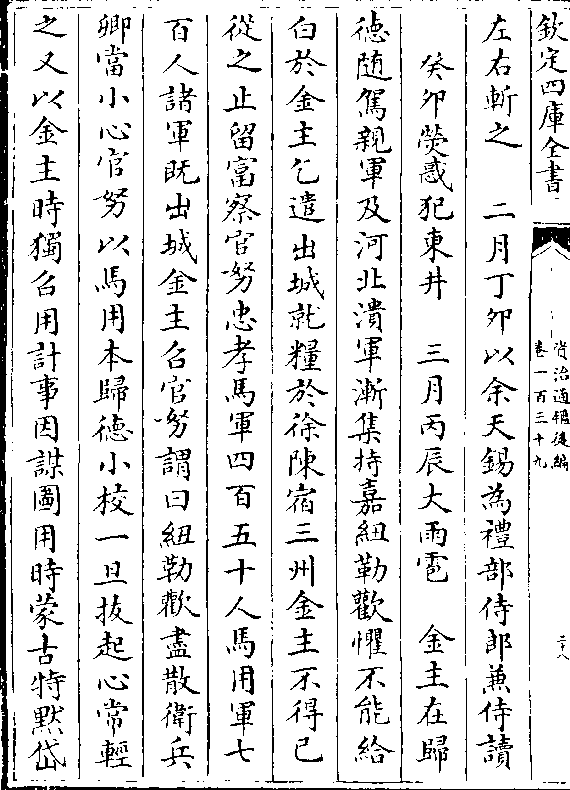 欽定四庫全書
資治通鑑後編
卷一百三十九
二十八
左右斬之　二月丁卯以余天錫為禮部侍郎兼侍讀
癸卯熒惑犯東井　三月丙辰大雨雹　金主在歸
德随駕親軍及河北潰軍漸集持嘉紐勒歡懼不能給
白於金主乞遣出城就糧於徐陳宿三州金主不得已
從之止留富察官努忠孝馬軍四百五十人馬用軍七
百人諸軍既出城金主召官努謂曰紐勒歡盡散衛兵
卿當小心官努以馬用本歸德小校一旦拔起心常輕
之又以金主時獨召用計事因謀圖用時蒙古特默岱